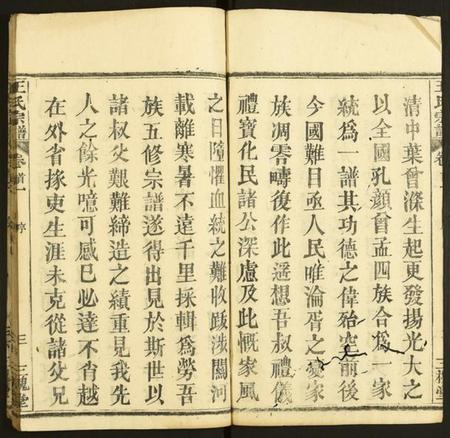 清中葉曾滌生起更發揚光大之
以全國孔顏曾孟四族合為一家
統為一譜其功德之偉殆空前後
今國難日亟人民唯淪胥之憂家
族凋零疇復作此遥想吾叔禮儀
禮寶化民諸公深慮及此慨家風
之日隳懼血統之難收跋涉關河
載離寒暑不遠千里採輯為勞吾
族五修宗譜遂得出見於斯世以
諸叔父艱難締造之績重見我先
人之餘光噫可感巳必達不肖越
在外省掾吏生涯未克從諸父兄
王氏宗譜
卷首一
三
三槐堂